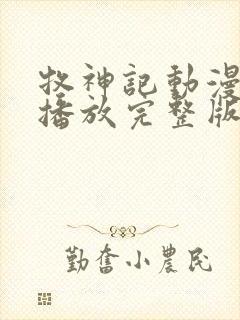 牧神記動漫
播放完整版
勤奮小農民